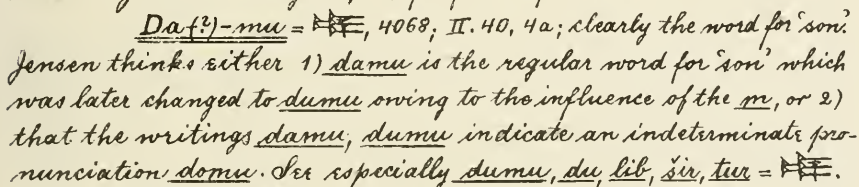 Da(?)-mu = 𒌉, 4068; II. 40, 4a; clearly the word for 'son'.
Jensen thinks either 1) damu is the regular word for 'son' which
was later changed to dumu owing to the influence of the m, or 2)
that the writings damu, dumu indicate an indeterminate pro-
nunciation domu. See especially dumu, du, lib, šir, tur = 𒌉.